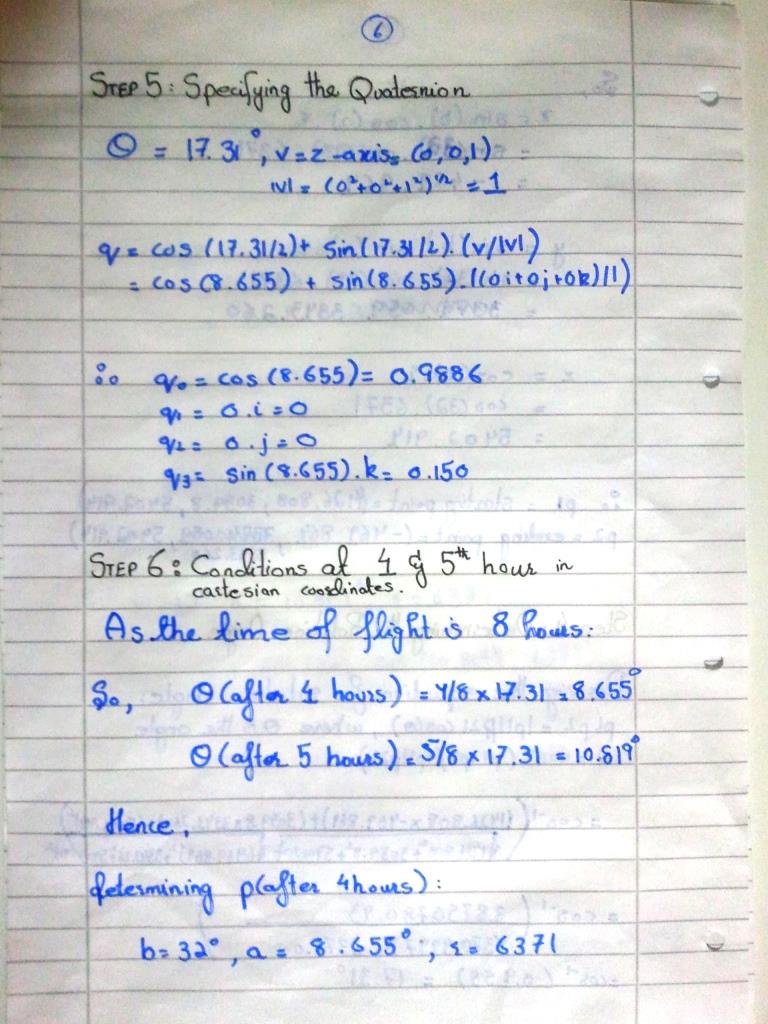 6
STEP 5: Specifying the Quaternion
θ = 17.31°, v = z-axis = (0,0,1)
|v| = (0²+0²+1²)^1/2 = 1
q = cos (17.31/2)+ sin(17.31/2).(v/|v|)
= cos(8.655) + sin(8.655).((0i+0j+0k)/1)
∴ q₀ = cos (8.655)= 0.9886
q₁ = 0.i = 0
q₂ = 0.j = 0
q₃ = sin (8.655).k = 0.150
STEP 6: Conditions at 4 & 5th hour in
cartesian coordinates.
As the time of flight is 8 hours:
So, θ (after 4 hours) = 4/8 x 17.31 = 8.655°
θ (after 5 hours) = 5/8 x 17.31 = 10.819°
Hence,
determining p(after 4hours):
b = 32°, a = 8.655°, r = 6371